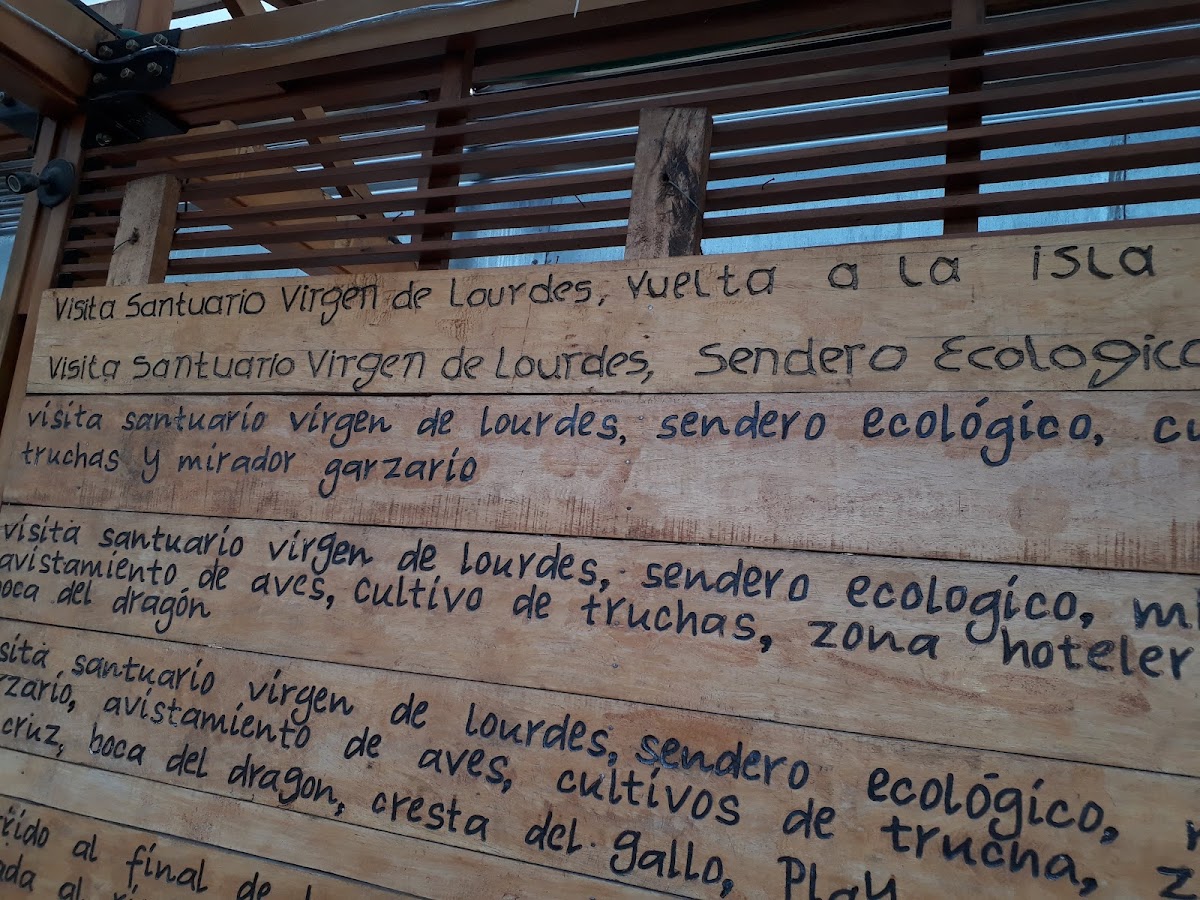 Visita Santuario Virgen de Lourdes, vuelta a la isla
Visita Santuario Virgen de Lourdes, Sendero Ecologico
visita santuario virgen de lourdes, sendero ecológico,
truchas y mirador garzario
visita santuario virgen de lourdes, sendero ecologico,
avistamiento de aves, cultivo de truchas, zona hoteler
boca del dragón
santuario virgen de lourdes, sendero ecológico,
avistamiento de aves, cultivos de trucha,
cruz, boca del dragon, cresta del gallo, Play
al final de